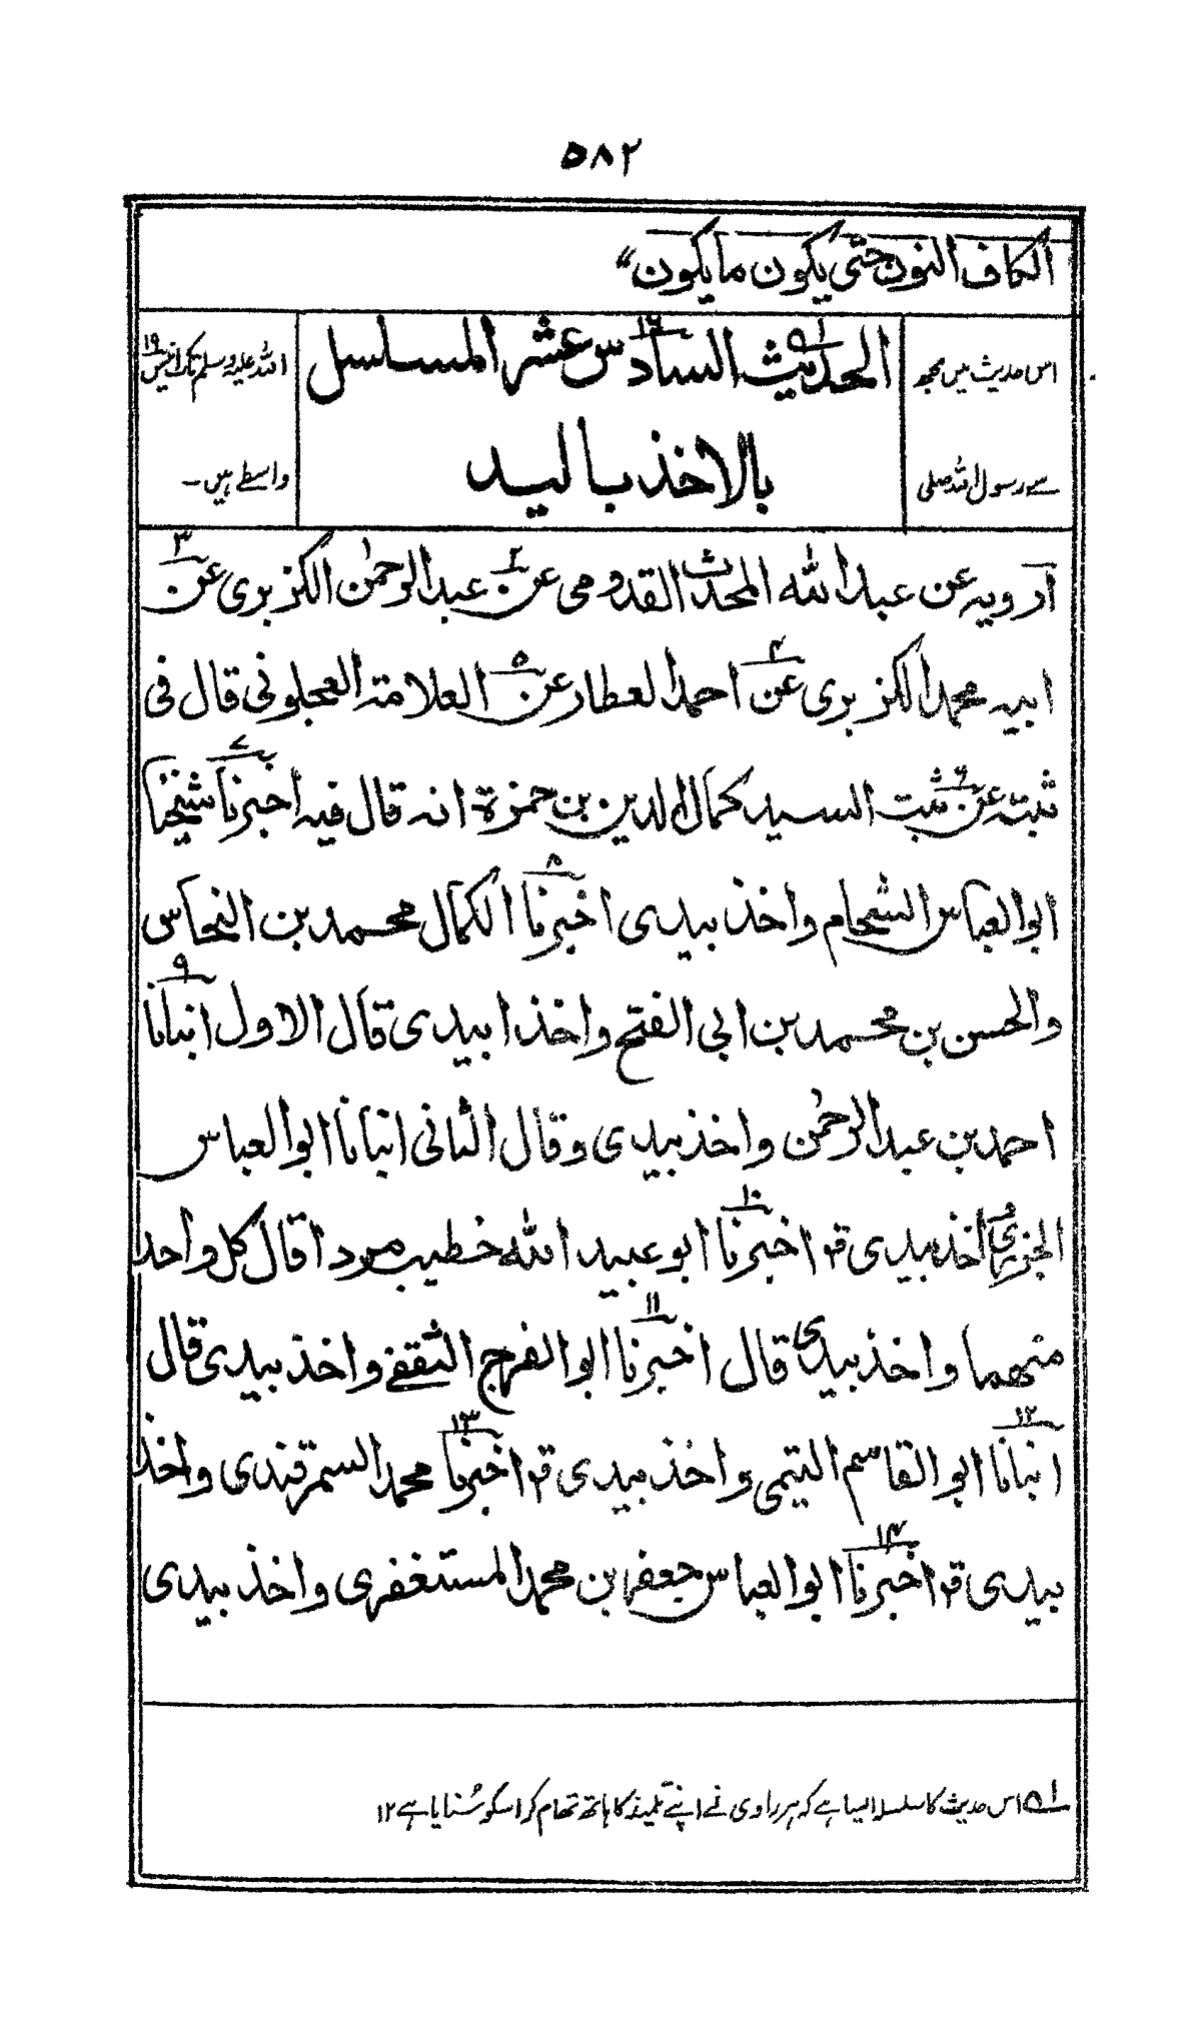 ۵۸۲
الكاف النون حتى يكون ما يكون"
اس حدیث میں مجھ
سے رسول اللہ صلی
الحديث السادس عشر المسلسل
بالاخذ باليد
اللہ علیہ وسلم تک انیس ۱۹
واسطے ہیں۔
ارويه عن عبد الله المحدث القدومى عن ۲ عبد الرحمٰن الكزبرى عن ۳
ابيه محمد الكزبرى عن ۴ احمد العطار عن ۵ العلامة العجلونى قال فى
ثبته عن ۶ ثبت السيد كمال الدين بن حمزة انه قال فيه اخبرنا ۷ شيخنا
ابو العباس الشحام واخذ بيدى اخبرنا ۸ الكمال محمد بن النحاس
والحسن بن محمد بن ابي الفتح واخذ ابيدى قال الاول انبانا ۹
احمد بن عبد الرحمٰن واخذ بيدى وقال الثانى انبانا ابو العباس
الجزرى واخذ بيدى قا اخبرنا ۱۰ ابو عبيد الله خطيب مردا قال كل واحد
منهما واخذ بيدى قال اخبرنا ۱۱ ابو الفرج الثقفى واخذ بيدى قال
انبانا ۱۲ ابو القاسم التيمى واخذ بيدى قا اخبرنا ۱۳ محمد السمرقندى واخذ
بيدى قا اخبرنا ۱۴ ابو العباس جعفر بن محمد المستغفرى واخذ بيدى
۱؎ اس حدیث کا سلسلہ ایسا ہے کہ ہر راوی نے اپنے تلمیذ کا ہاتھ تھام کر اسکو سُنایا ہے ۱۲